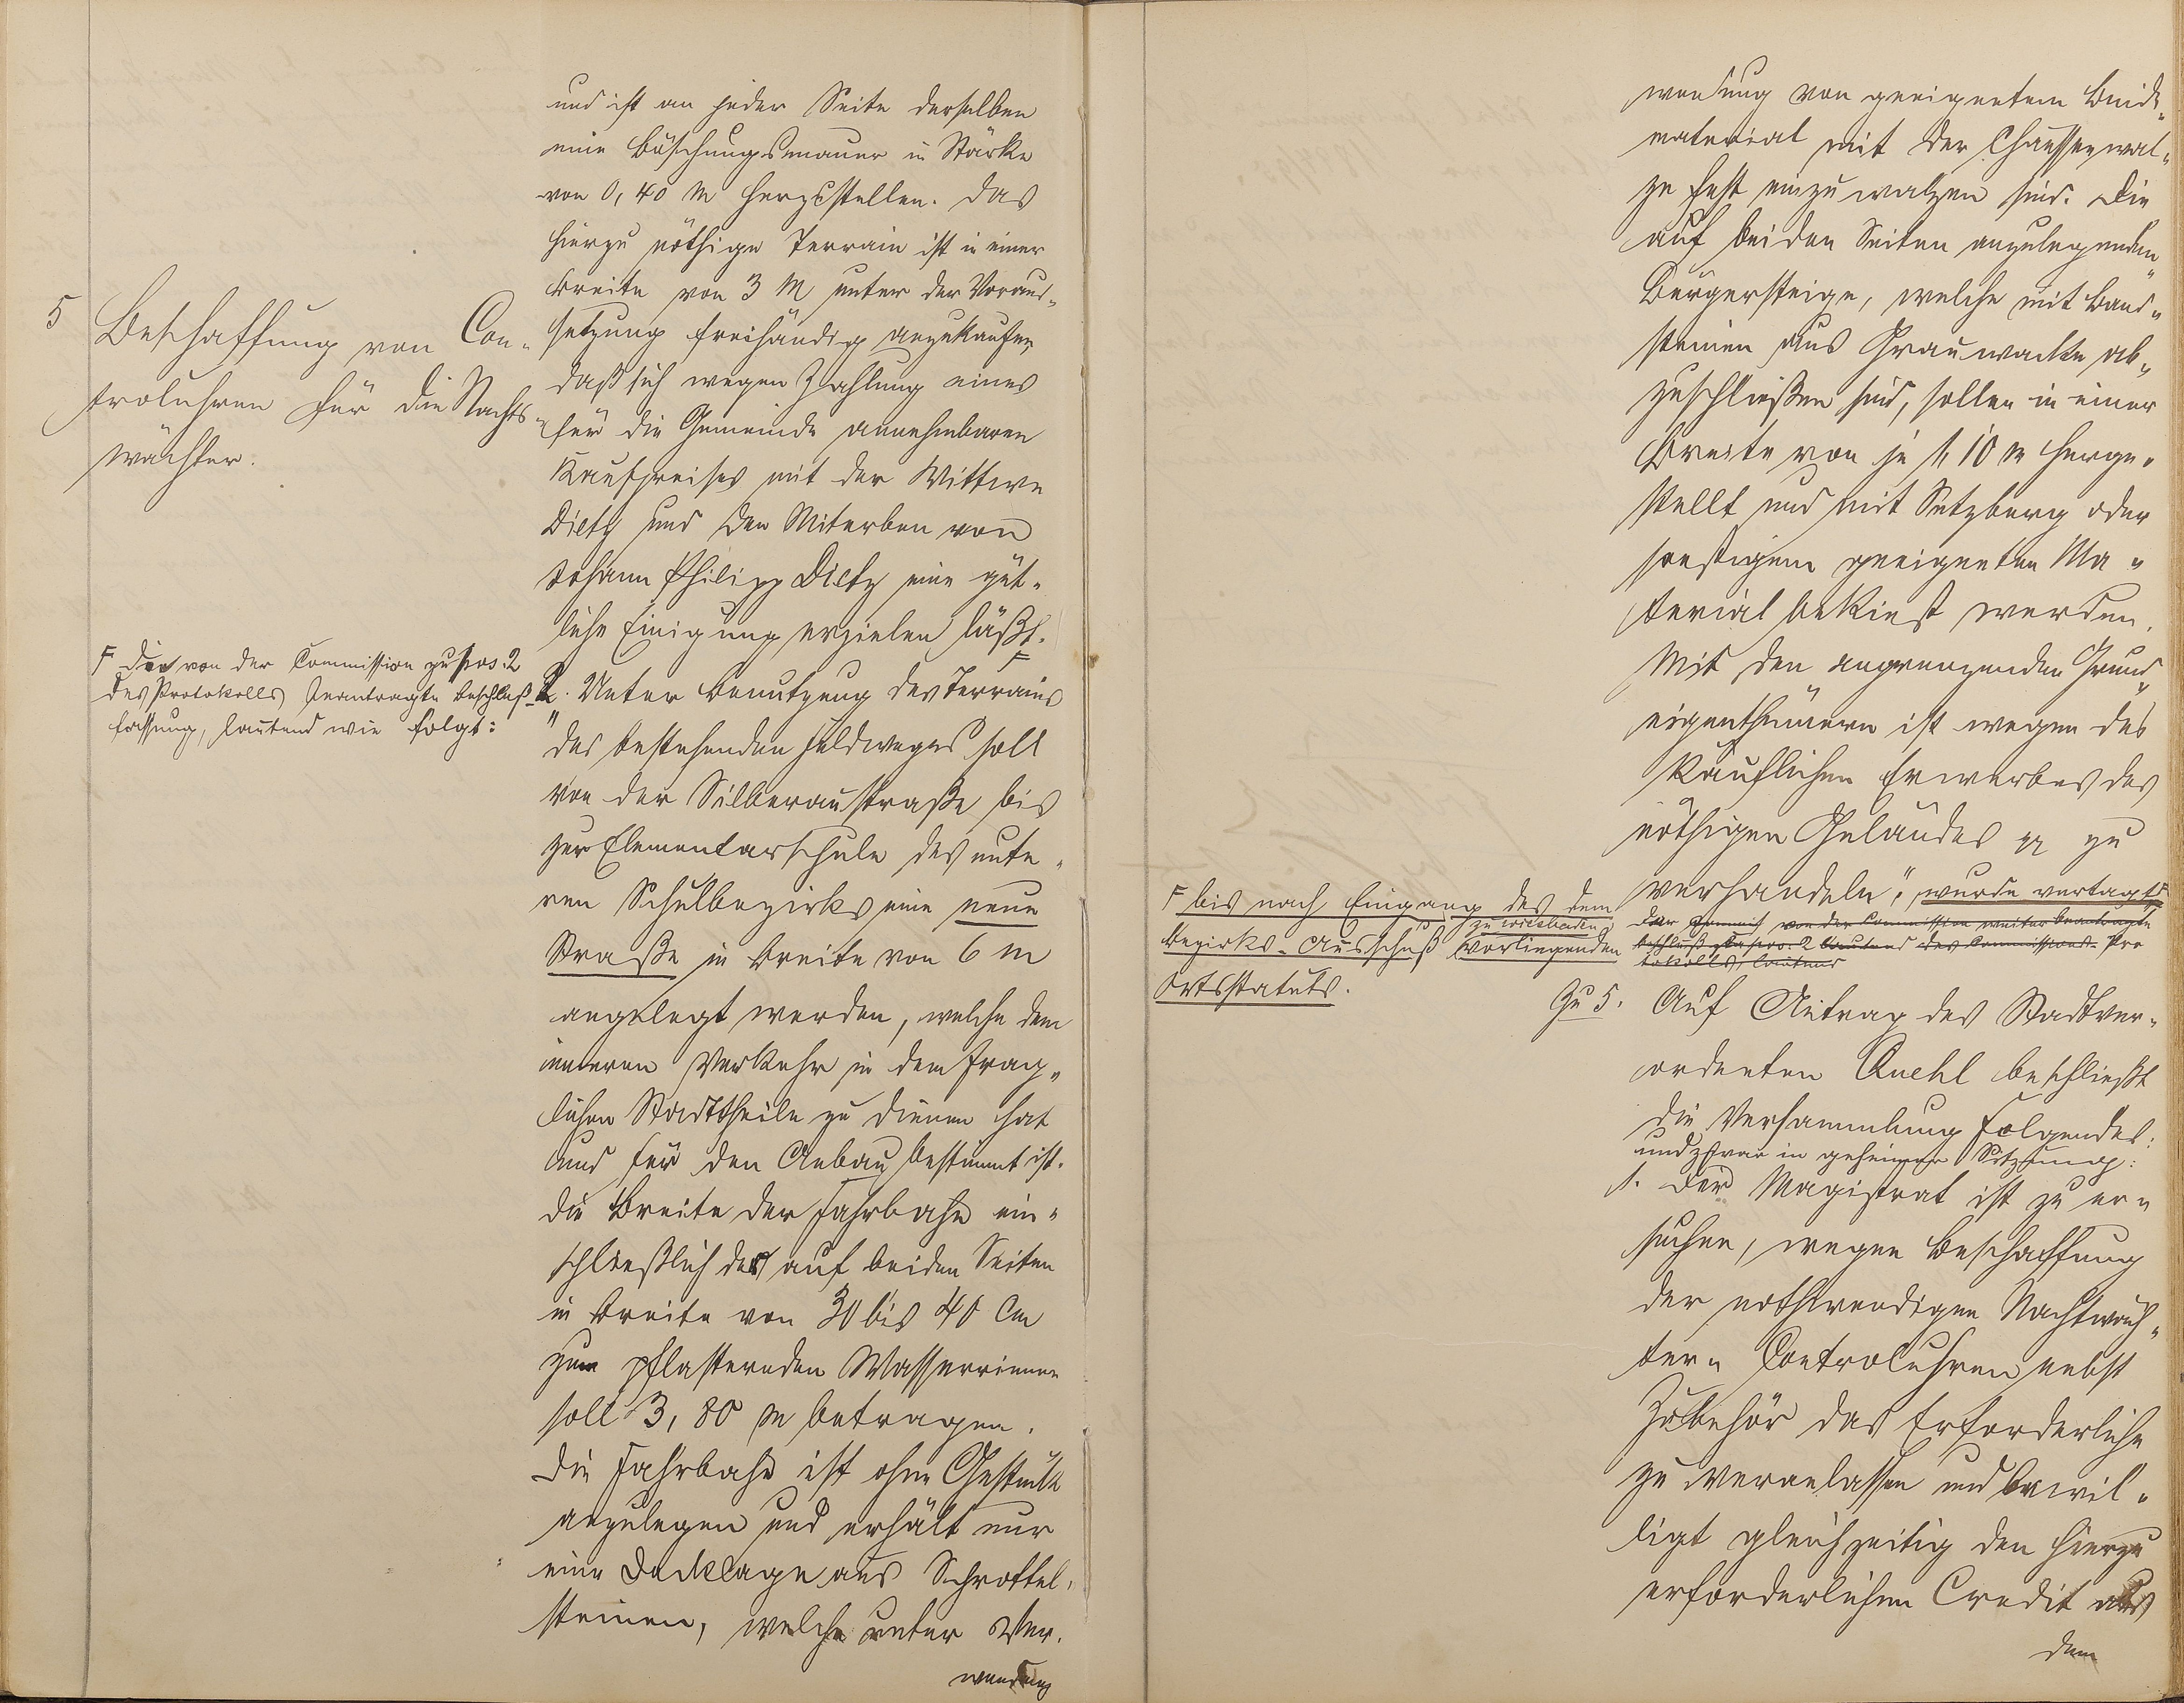 5 Beschaffung von Con-
troluhren für die Nachts-
wächter.
F Die von der Commission zu pos. 2
des Protokolls beantragte Beschluß-
fassung, lautend wie folgt:
und ist an jeder Seite derselben
eine Böschungsmauer in Stärke
von 0,40 m herzustellen. Das
hierzu nöthige Terrain ist in einer
Breite von 3 M unter der Voraus-
setzung freihändig anzukaufen,
daß sich wegen Zahlung eines
für die Gemeinde annehmbaren
Kaufpreises mit der Wittwe
Dietz und den Miterben von
Johann Philipp Dietz eine güt-
liche Einigung erzielen läßt.
F
2. Unter Benutzung des Terrains
"des bestehenden Feldweges soll
von der Silberaustraße bis
zur Elementarschule des unte-
ren Schulbezirks eine neue
Straße in Breite von 6 m
angelegt werden, welche dem
inneren Verkehr in dem frag-
lichen Stadttheile zu dienen hat
und für den Anbau bestimmt ist.
Die Breite der Fahrbahn ein-
schließlich der auf beiden Seiten
in Breite von 30 bis 40 Cm
zum pflasternden Wasserrinnen
soll 3,80 m betragen.
Die Fahrbahn ist ohne Gestück
anzulegen und erhält nur
eine Decklage aus Schrottel-
steinen, welche unter Ver-
wendung
wendung von geeignetem Binde-
material mit der Chausseewal-
ze fest einzuwalzen sind. Die
auf beiden Seiten anzulegenden
Bürgersteige, welche mit Band-
steinen aus Grauwacke ab-
zuschließen sind, sollen in einer
Breite von je 1,10 m herge-
stellt und mit Setzberg oder
sonstigem geeigneten Ma-
terial bekiest werden.
Mit den angrenzenden Grund-
eigenthümern ist wegen des
käuflichen Erwerbes des
nöthigen Geländes zu
verhandeln", wurde vertagt F
F bis nach Eingang des dem
Bezirks-Ausschuß zu Wiesbaden vorliegenden
Ortsstatuts.
von der Commission weiter beantragte
Beschluß zu pos. 2 lautend des Commissions-Pro-
tokolls, lautend
Zu 5. Auf Antrag des Stadtver-
ordneten Quehl beschließt
die Versammlung Folgendes:
und zwar in geheimer Sitzung:
1. Der Magistrat ist zu er-
suchen, wegen Beschaffung
der nothwendigen Nachtwäch-
ter- Controluhren nebst
Zubehör das Erforderliche
zu veranlassen und bewil-
ligt gleichzeitig den hierzu
erforderlichen Credit aus
dem